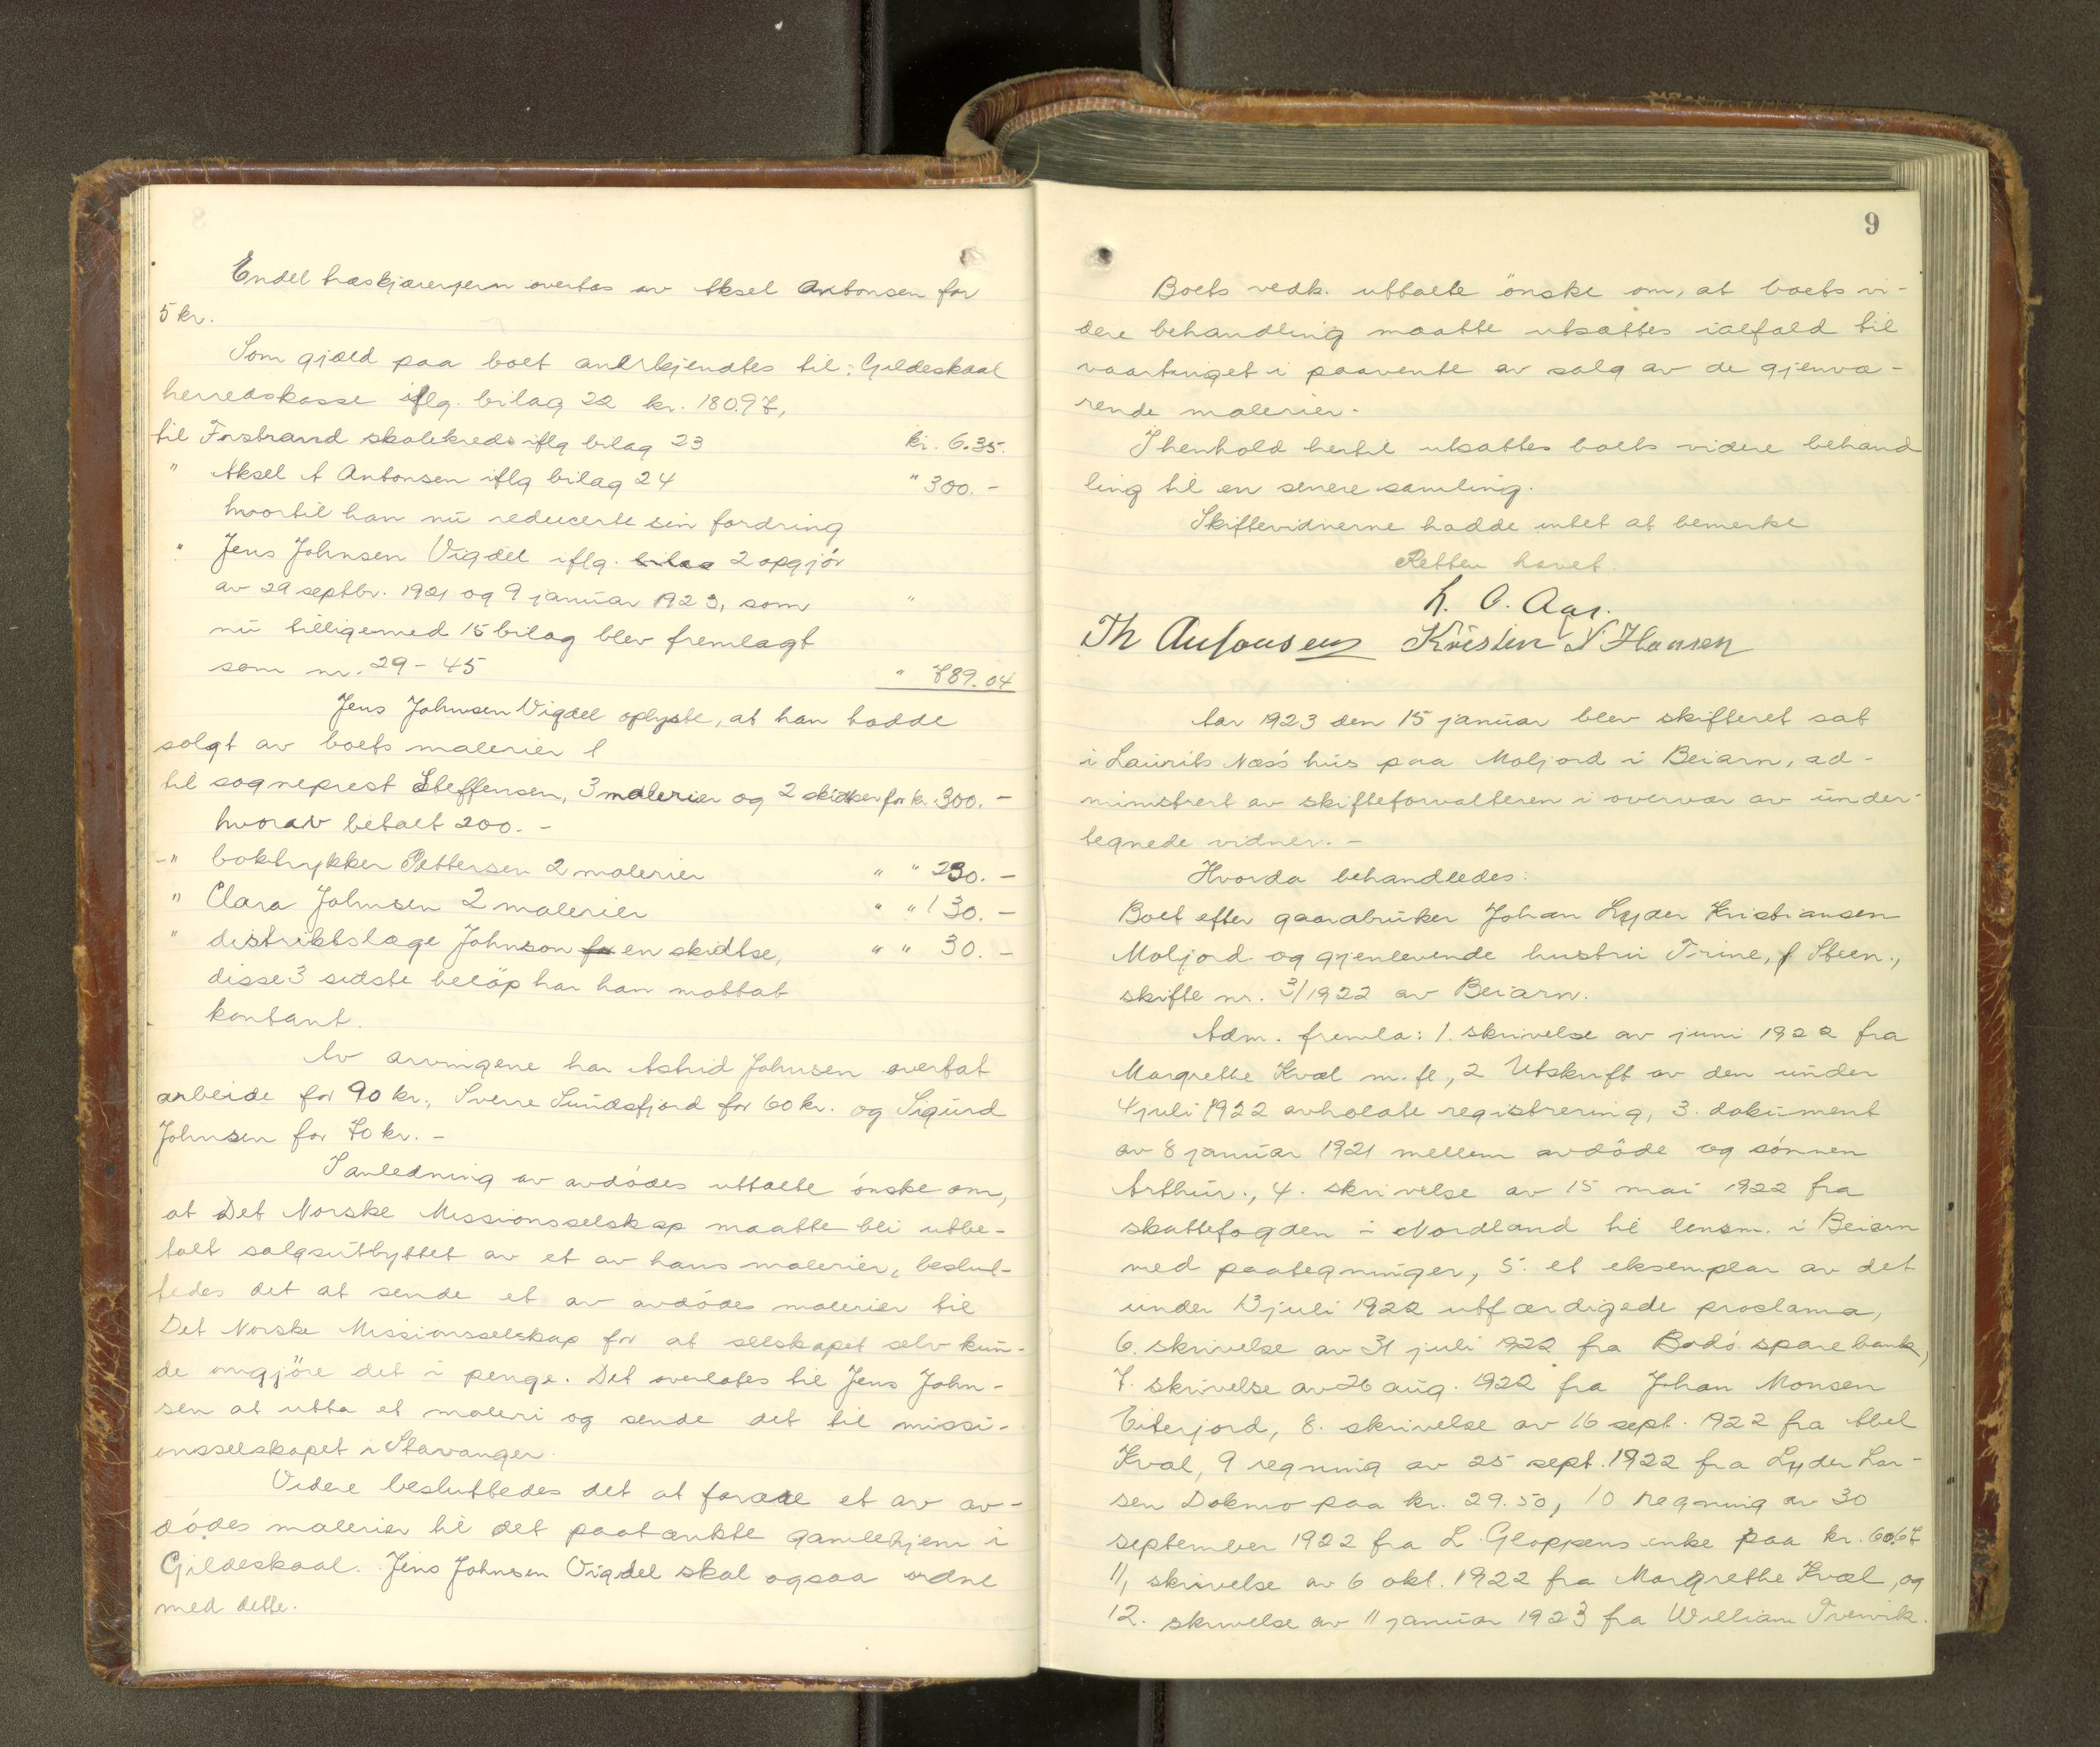 Endel træskjærerjern overtas av Aksel Antonsen for
5 kr.
Som gjæld paa boet anerkjendtes til: Gildeskaal
herredskasse iflg. bilag 22 kr. 180.97,
til Forstrand skolekreds iflg bilag 23 kr. 6.35.
" Aksel A Antonsen iflg bilag 24 " 300.-
hvortil han nu reducerte sin fordring
" Jens Johnsen Vigdel iflg. bilag 2 opgjör
av 29 septbr. 1921 og 9 januar 1923, som "
nu tilligemed 15 bilag blev fremlagt
som nr. 29-45 " 789.04
Jens Johnsen Vigdel oplyste, at han hadde
solgt av boets malerier
til sogneprest Steffensen, 3 malerier og 2 skidser for kr. 300.-
hvorav betalt 200.-
-" boktrykker Pettersen 2 malerier " " 230.-
" Clara Johnsen 2 malerier " " 130.-
" distriktslæge Johnson for en skidtse, " " 30.-
disse 3 sidste belöp har han mottat
kontant.
Av arvingene har Astrid Johnsen overtat
arbeide for 90 kr., Sverre Sundsfjord for 60 kr. og Sigurd
Johnsen for 70 kr. -
I anledning av avdödes uttalte önske om,
at Det Norske Missionsselskap maatte bli utbe-
talt salgsutbyttet av et av hans malerier, beslut-
tedes det at sende et av avdödes malerier til
Det Norske Missionsselskap for at selskapet selv kun-
de omgjöre det i penge. Det overlates til Jens John-
sen at utta et maleri og sende det til missi-
onsselskapet i Stavanger.
Videre besluttedes det at forære et av av-
dödes malerier til det paatænkte gamlehjem i
Gildeskaal. Jens Johnsen Vigdel skal ogsaa ordne
med dette.
9
Boets vedk. uttalte önske om, at boets vi-
dere behandling maatte utsættes ialfald til
vaartinget i paavente av salg av de gjenvæ-
rende malerier.
I henhold hertil utsattes boets videre behand
ling til en senere samling.
Skiftevidnerne hadde intet at bemerke
Retten hævet.
L. O. Aar.
Th Antonsen Kristen N Hansen
Aar 1923 den 15 januar blev skifteret sat
i Laurits Næss hus paa Moljord i Beiarn, ad-
ministrert av skifteforvalteren i overvær av under-
tegnede vidner. -
Hvorda behandledes:
Boet efter gaardbruker Johan Lyder Kristiansen
Moljord og gjenlevende hustru Trine, f Steen.,
skifte nr. 3/1922 av Beiarn.
Adm. fremla: 1. skrivelse av juni 1922 fra
Margrethe Kvæl m. fl, 2 Utskrift av den under
4 juli 1922 avholdte registrering, 3. dokument
av 8 januar 1921 mellem avdöde og sönnen
Arthur., 4. skrivelse av 15 mai 1922 fra
skattefogden i Nordland til lensm. i Beiarn
med paategninger, 5. et eksemplar av det
under 13 juli 1922 utfærdigede proclama,
6. skrivelse av 31 juli 1922 fra Bodö sparebank,
7. skrivelse av 26 aug. 1922 fra Johan Monsen
Eiterjord, 8. skrivelse av 16 sept. 1922 fra Abel
Kvæl, 9 regning av 25 sept. 1922 fra Lyder Lar-
sen Dokmo paa kr. 29.50, 10 regning av 30
september 1922 fra L. Gloppens enke paa kr. 60.67
11, skrivelse av 6 okt. 1922 fra Margrethe Kvæl, og
12. skrivelse av 11 januar 1923 fra William Tvervik.